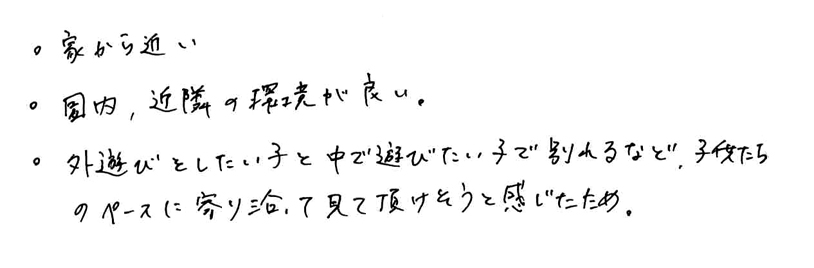 。家から近い
。園内, 近隣の環境が良い。
。外遊びをしたい子と中で遊びたい子で別れるなど, 子供たち
のペースに寄り沿って見て頂けそうと感じたため。